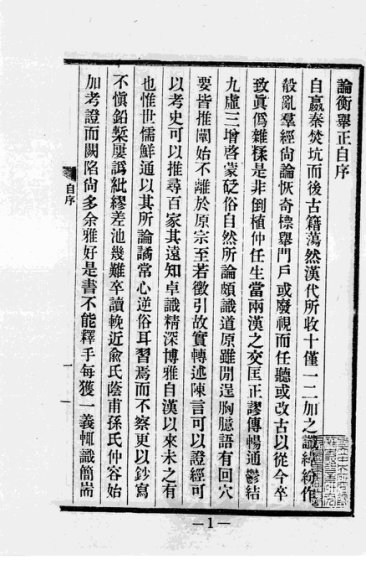 論衡舉正自序
自嬴秦焚坑而後古籍蕩然漢代所收十僅一二加之讖緯紛作
殽亂羣經尙論恢奇標舉門戶或廢視而任聽或改古以從今卒
致眞僞雜糅是非倒植仲任生當兩漢之交匡正謬傳暢通鬱結
九虛三增啓蒙砭俗自然所論頗識道原雖閒逞胸臆語有回穴
要皆推闡始不離於原宗至若徵引故實轉述陳言可以證經可
以考史可以推尋百家其遠知卓識精深博雅自漢以來未之有
也惟世儒鮮通以其所論譎常心逆俗耳習焉而不察更以鈔寫
不愼鉛槧屢譌紕繆差池幾難卒讀輓近俞氏蔭甫孫氏仲容始
加考證而闕陷尙多余雅好是書不能釋手每獲一義輒識簡耑
自序
—1—